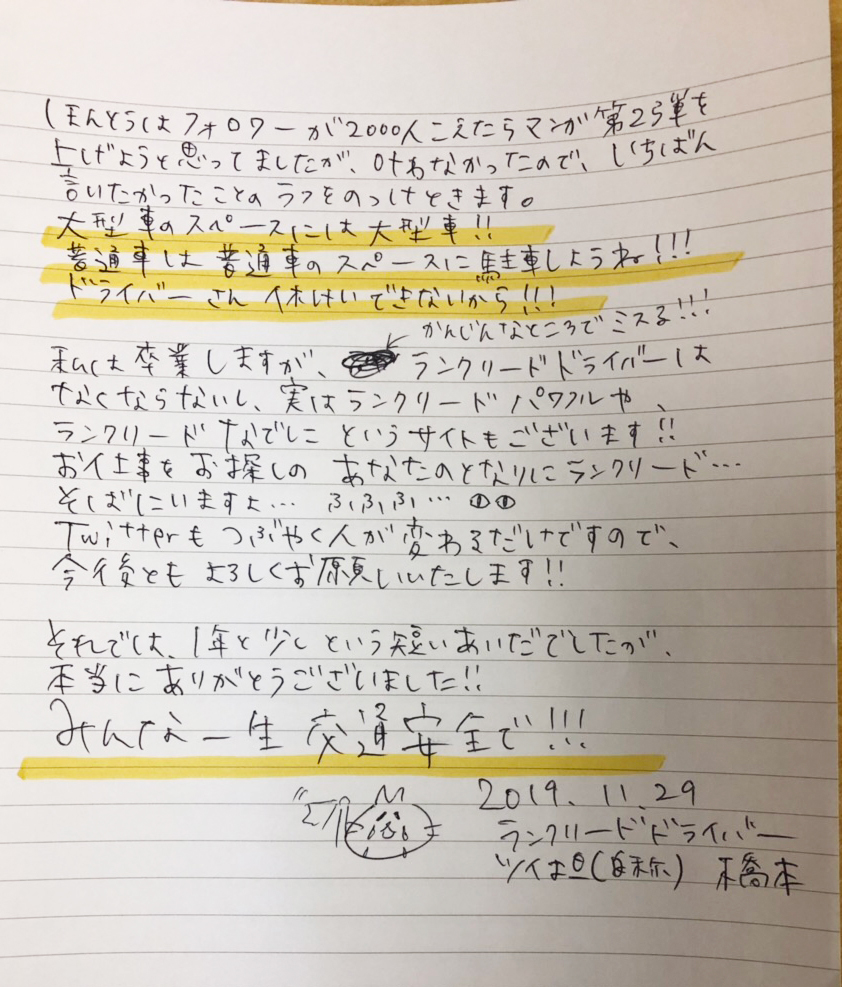 ほんとうはフォロワーが2000人こえたらマンガ第2弾を
上げようと思ってましたが、叶わなかったので、いちばん
言いたかったことのラフをのっけときます。
大型車のスペースには大型車!!
普通車は普通車のスペースに駐車しようね!!!
ドライバーさん休けいできないから!!!
かんじんなところでミスる!!!
私は卒業しますが、ランクリードドライバーは
なくならないし、実はランクリードパワフルや、
ランクリードなでしこというサイトもございます!!
お仕事をお探しのあなたのとなりにランクリード…
そばにいますよ… ふふふ…
Twitterもつぶやく人が変わるだけですので、
今後ともよろしくお願いいたします!!
それでは、1年と少しという短いあいだでしたが、
本当にありがとうございました!!
みんな一生交通安全で!!!
2019.11.29
ランクリードドライバー
ツイ担(自称) 橋本